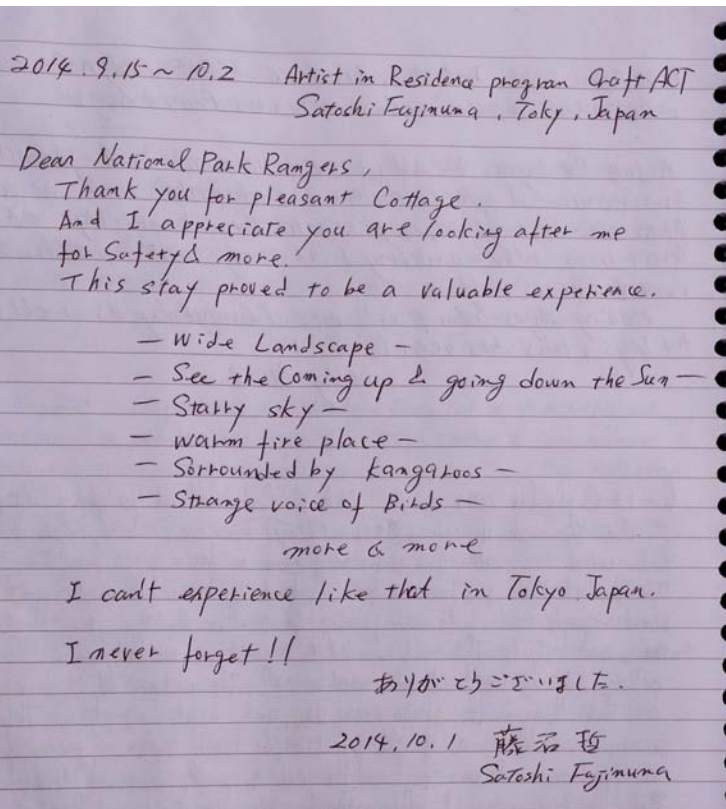 2014.9.15~10.2 Artist in Residence program Craft ACT
Satoshi Fujinuma, Toky, Japan
Dear National Park Rangers,
Thank you for pleasant Cottage.
And I appreciate you are looking after me
for Safety & more.
This stay proved to be a valuable experience.
— Wide Landscape —
— See the Coming up & going down the Sun —
— Starry sky —
— warm fire place —
— Sorrounded by kangaroos —
— Strange voice of Birds —
more & more
I can't experience like that in Tokyo Japan.
I never forget!!
ありがとうございました.
2014.10.1 藤沼 哲
Satoshi Fujinuma